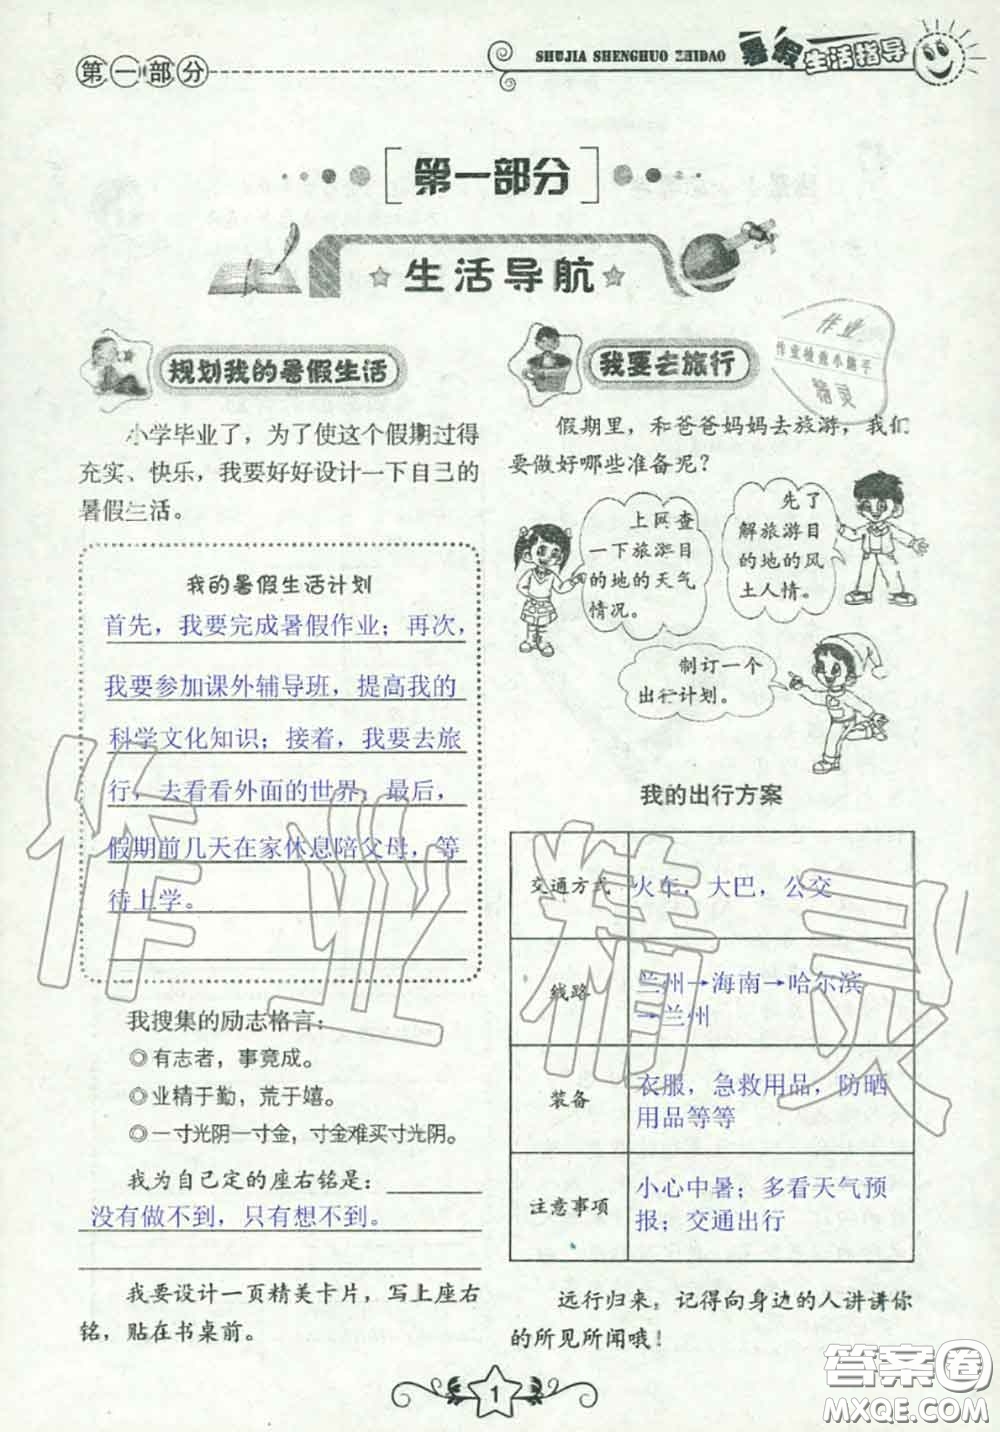 第一部分
SHUJIA SHENGHUO ZHIDAO
暑假生活指导
第一部分
生活导航
规划我的暑假生活
小学毕业了，为了使这个假期过得
充实、快乐，我要好好设计一下自己的
暑假生活。
我的暑假生活计划
首先，我要完成暑假作业；再次，
我要参加课外辅导班，提高我的
科学文化知识；接着，我要去旅
行，去看看外面的世界，最后，
假期前几天在家休息陪父母，等
待上学。
我搜集的励志格言：
◎有志者，事竟成。
◎业精于勤，荒于嬉。
◎一寸光阴一寸金，寸金难买寸光阴。
我为自己定的座右铭是：
没有做不到，只有想不到。
我要设计一页精美卡片，写上座右
铭，贴在书桌前。
我要去旅行
作业
作业检查小助手
精灵
假期里，和爸爸妈妈去旅游，我们
要做好哪些准备呢？
上网查
一下旅游目
的地的天气
情况。
先了
解旅游目
的地的风
土人情。
制订一个
出行计划。
我的出行方案
交通方式 火车，大巴，公交
线路 兰州→海南→哈尔滨
→兰州
装备 衣服，急救用品，防晒
用品等等
注意事项 小心中暑；多看天气预
报；交通出行
远行归来，记得向身边的人讲讲你
的所见所闻哦！
作业精灵
1
答案圈
MXQE.COM